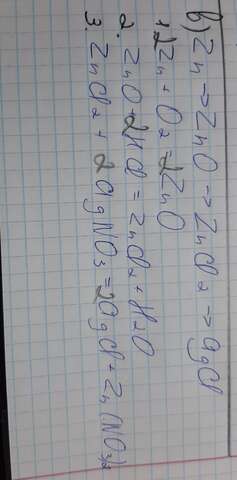 в) Zn → ZnO → ZnCl₂ → AgCl
1. 2Zn + O₂ = 2ZnO
2. ZnO + 2HCl = ZnCl₂ + H₂O
3. ZnCl₂ + 2AgNO₃ = 2AgCl + Zn(NO₃)₂